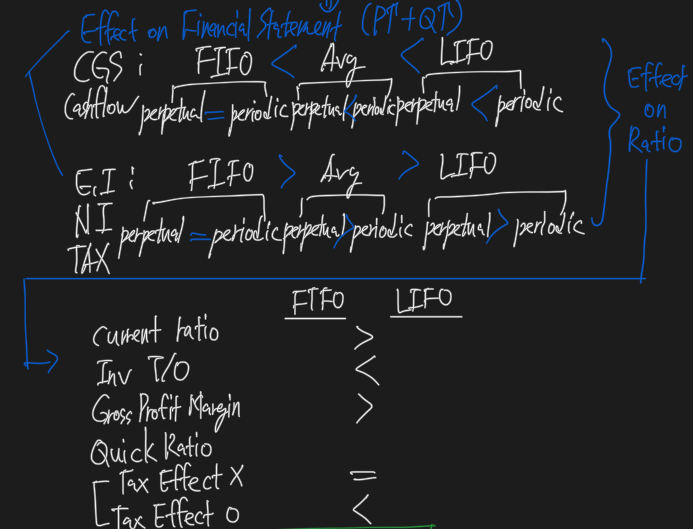 Effect on Financial Statement (P↑+Q↑)
CGS : FIFO < Avg < LIFO
Cashflow perpetual = periodic perpetual < periodic perpetual < periodic
Effect
on
Ratio
E.I : FIFO > Avg > LIFO
NI
perpetual = periodic perpetual > periodic perpetual > periodic
TAX
FIFO LIFO
Current ratio >
Inv T/O <
Gross Profit Margin >
Quick Ratio
Tax Effect X =
Tax Effect O <